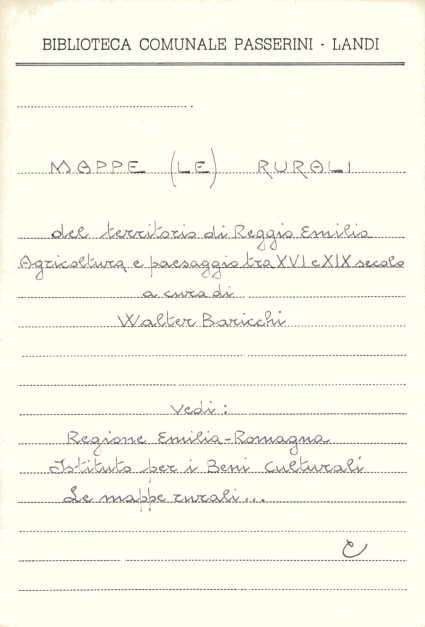 BIBLIOTECA COMUNALE PASSERINI - LANDI
MAPPE (LE) RURALI
del territorio di Reggio Emilia
Agricoltura e paesaggio tra XVI e XIX secolo
a cura di
Walter Baricchi
vedi:
Regione Emilia-Romagna
Istituto per i Beni Culturali
Le mappe rurali...
C